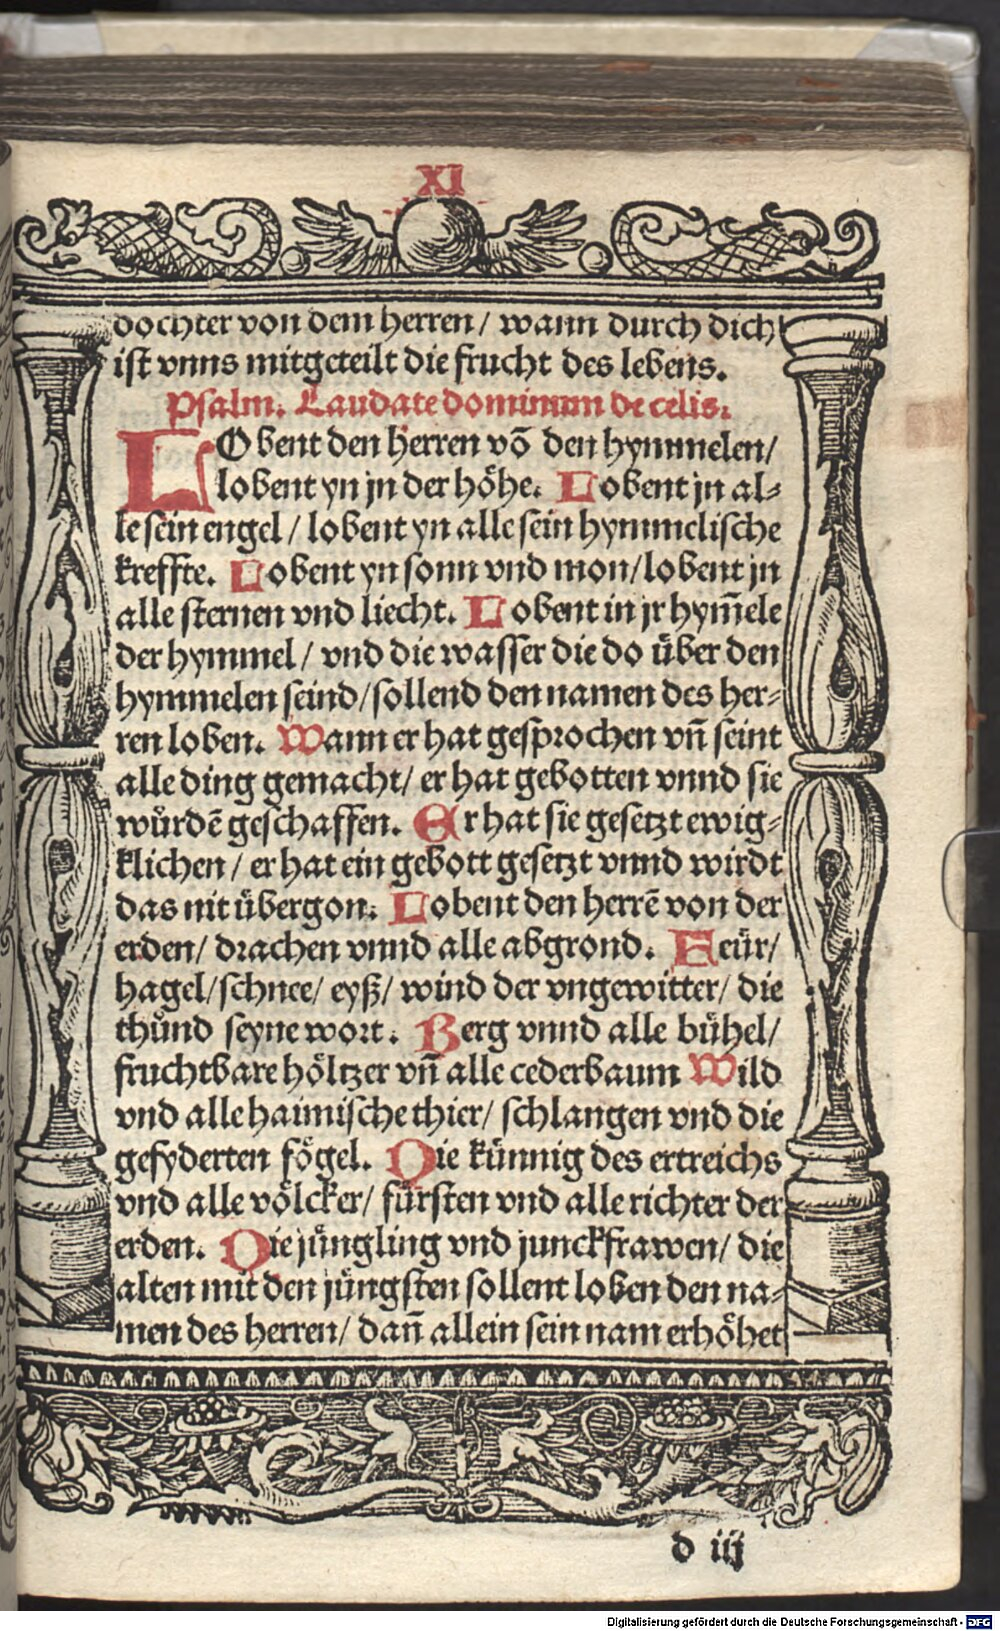 XI
dochter von dem herren / wann durch dich
ist vnns mitgeteilt die frucht des lebens.
Psalm. Laudate dominum de celis.
LObent den herren võ den hymmelen /
lobent yn jn der höhe. Lobent jn al⸗
le sein engel / lobent yn alle sein hymmelische
kreffte. Lobent yn sonn vnd mon / lobent jn
alle sternen vnd liecht. Lobent in jr hym̃ele
der hymmel / vnd die wasser die do über den
hymmelen seind / sollend den namen des her⸗
ren loben. Wann er hat gesprochen vñ seint
alle ding gemacht / er hat gebotten vnnd sie
wůrdẽ geschaffen. Er hat sie gesetzt ewig⸗
klichen / er hat ein gebott gesetzt vnnd wirdt
das nit übergon. Lobent den herrẽ von der
erden / drachen vnnd alle abgrond. Feür /
hagel / schnee / eyß / wind der vngewitter / die
thůnd seyne wort. Berg vnnd alle bühel /
fruchtbare höltzer vñ alle cederbaum Wild
vnd alle haimische thier / schlangen vnd die
gefyderten fögel. Die künnig des ertreichs
vnd alle völcker / fürsten vnd alle richter der
erden. Die jüngling vnd junckfrawen / die
alten mit den jüngsten sollent loben den na⸗
men des herren / dañ allein sein nam erhöhet
d iij
Digitalisierung gefördert durch die Deutsche Forschungsgemeinschaft - DFG